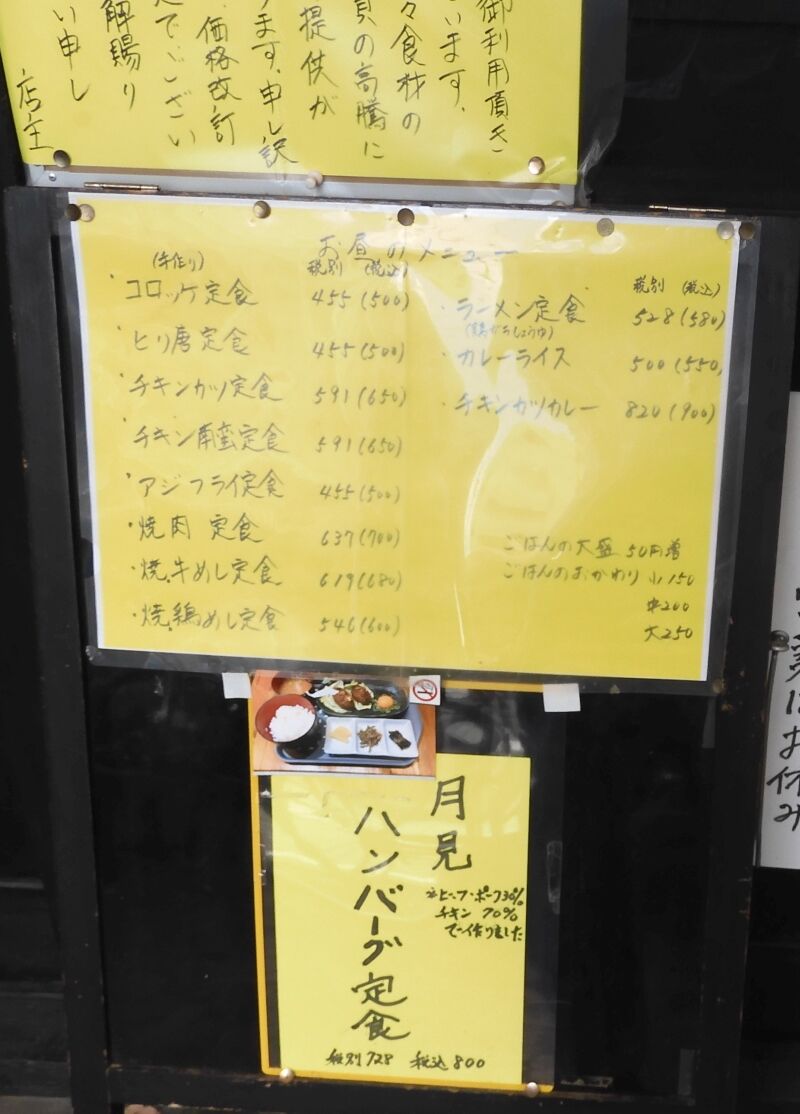 御利用頂き
います。
々食材の
の高騰に
提供が
ます。申し訳
価格改訂
でござい
解賜り
い申し
店主
お昼のメニュー
(手作り) 税別 (税込)
・コロッケ定食 455(500)
・ヒリ唐定食 455(500)
・チキンカツ定食 591(650)
・チキン南蛮定食 591(650)
・アジフライ定食 455(500)
・焼肉 定食 637(700)
・焼牛めし定食 619(680)
・焼鶏めし定食 546(600)
税別 (税込)
・ラーメン定食 528(580)
(鶏がらしょうゆ)
・カレーライス 500(550)
・チキンカツカレー 820(900)
ごはんの大盛 50円増
ごはんのおかわり 小150
中200
大250
月見
ハンバーグ定食
※ビーフ・ポーク30%
チキン 70%
で作りました
税別728 税込800
はお休み